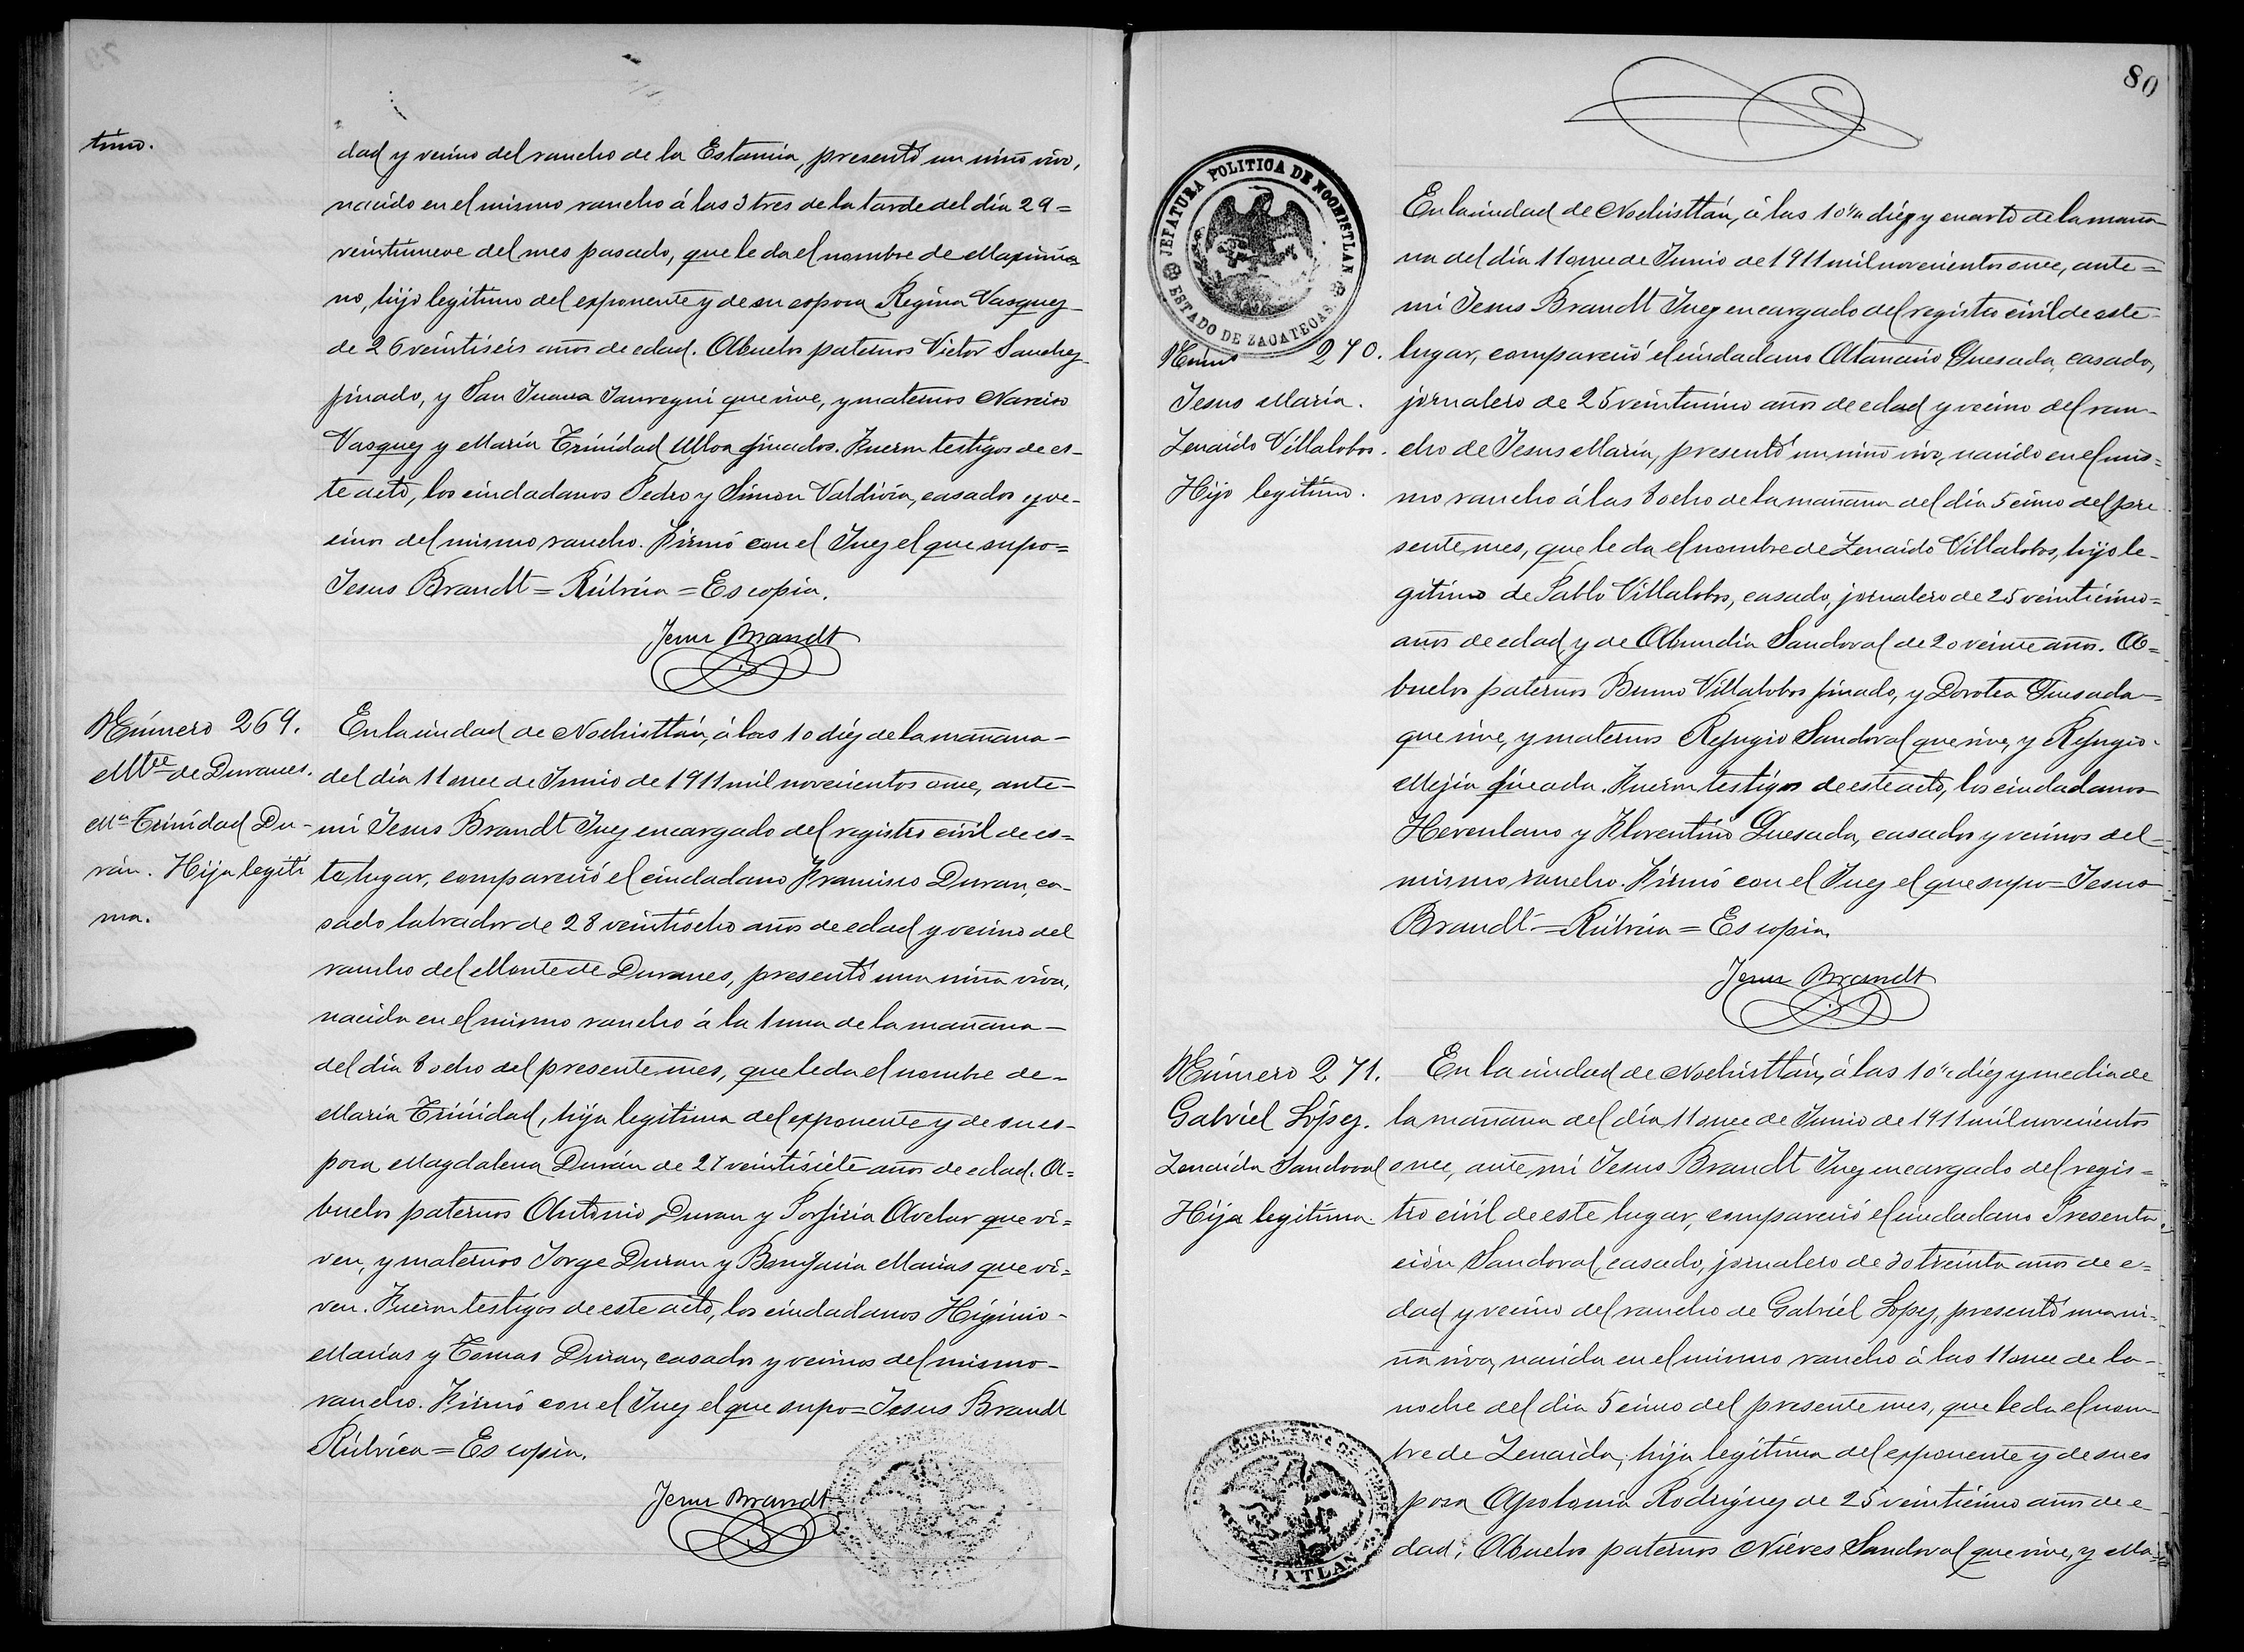 timo.
dad y vecino del rancho de la Estancia, presentó un niño vivo,
nacido en el mismo rancho á las 3 tres de la tarde del día 29=
veintinueve del mes pasado, que le da el nombre de Maximia
no, hijo legitimo del exponente y de su esposa Regina Vasquez
de 26 veintiseis años de edad. Abuelos paternos Victor Sanchez
finado, y San Juana Jauregui que vive, y maternos Narciso
Vasquez y María Trinidad Ulloa finados. Fueron testigos de es-
te acto, los ciudadanos Pedro y Simon Valdivia, casados y ve-
cinos del mismo rancho. Firmó con el Juez el que supo=
Jesus Brandt=Rúbrica=Es copia.
Jesus Brandt
Número 269.
Mte de Duranes.
Ma Trinidad Du-
rán. Hija legíti
ma.
En la ciudad de Nochistlán, á las 10 diéz de la mañana-
del día 11 once de Junio de 1911 mil novecientos once, ante-
mi Jesus Brandt Juez encargado del registro civil de es-
te lugar, compareció el ciudadano Francisco Duran, ca-
sado labrador de 28 veintiocho años de edad y vecino del
rancho del Monte de Duranes, presentó una niña viva,
nacida en el mismo rancho á la 1 una de la mañana-
del día 8 ocho del presente mes, que le da el nombre de-
María Trinidad, hija legitima del exponente y de su es-
posa Magdalena Durán de 27 veintisiete años de edad. A-
buelos paternos Antonio Duran y Porfiria Avelar que vi=
ven, y maternos Jorge Duran y Bonifacia Macias que vi=
ven. Fueron testigos de este acto, los ciudadanos Higinio-
Macías y Tomas Duran, casados y vecinos del mismo-
rancho. Firmó con el Juez el que supo=Jesus Brandt
Rúbrica=Es copia.
Jesus Brandt
80
JEFATURA POLITICA DE NOCHISTLAN
ESTADO DE ZACATECAS.
270.
Jesus María.
Zenaido Villalobos.
Hijo legítimo.
En la ciudad de Nochistlán, á las 10¼ diéz y cuarto de la maña
na del día 11 once de Junio de 1911 mil novecientos once, ante=
mi Jesus Brandt Juez encargado del registro civil de este-
lugar, compareció el ciudadano Atanacio Quesada, casado,
jornalero de 25 veinticinco años de edad y vecino del ran-
cho de Jesus María, presentó un niño vivo, nacido en el mis=
mo rancho á las 8 ocho de la mañana del día 5 cinco del pre
sente mes, que le da el nombre de Zenaido Villalobos, hijo le-
gitimo de Pablo Villalobos, casado, jornalero de 25 veinticinco=
años de edad, y de Abundia Sandoval de 20 veinte años. A=
buelos paternos Bruno Villalobos finado, y Dorotea Quesada-
que vive, y maternos Refugio Sandoval que vive, y Refugio-
Mejia finada. Fueron testigos de este acto, los ciudadanos
Herculano y Florentino Quesada, casados y vecinos del-
mismo rancho. Firmó con el Juez el que supo=Jesus
Brandt=Rúbrica=Es copia.
Jesus Brandt
Número 271.
Gabriel López.
Zenaida Sandoval
Hija legitima.
En la ciudad de Nochistlán, á las 10½ diéz y media de
la mañana del día 11 once de Junio de 1911 mil novecientos
once, ante mi Jesus Brandt Juez encargado del regis=
tro civil de este lugar, compareció el ciudadano Presenta
ción Sandoval, casado, jornalero de 30 treinta años de e=
dad y vecino del rancho de Gabriel Lopez, presentó una ni-
ña viva, nacida en el mismo rancho á las 11 once de la-
noche del día 5 cinco del presente mes, que le da el nom-
bre de Zenaida, hija legítima del exponente y de su es
posa Apolonia Rodriguez de 25 veinticinco años de e
dad. Abuelos paternos Nieves Sandoval que vive, y Ma